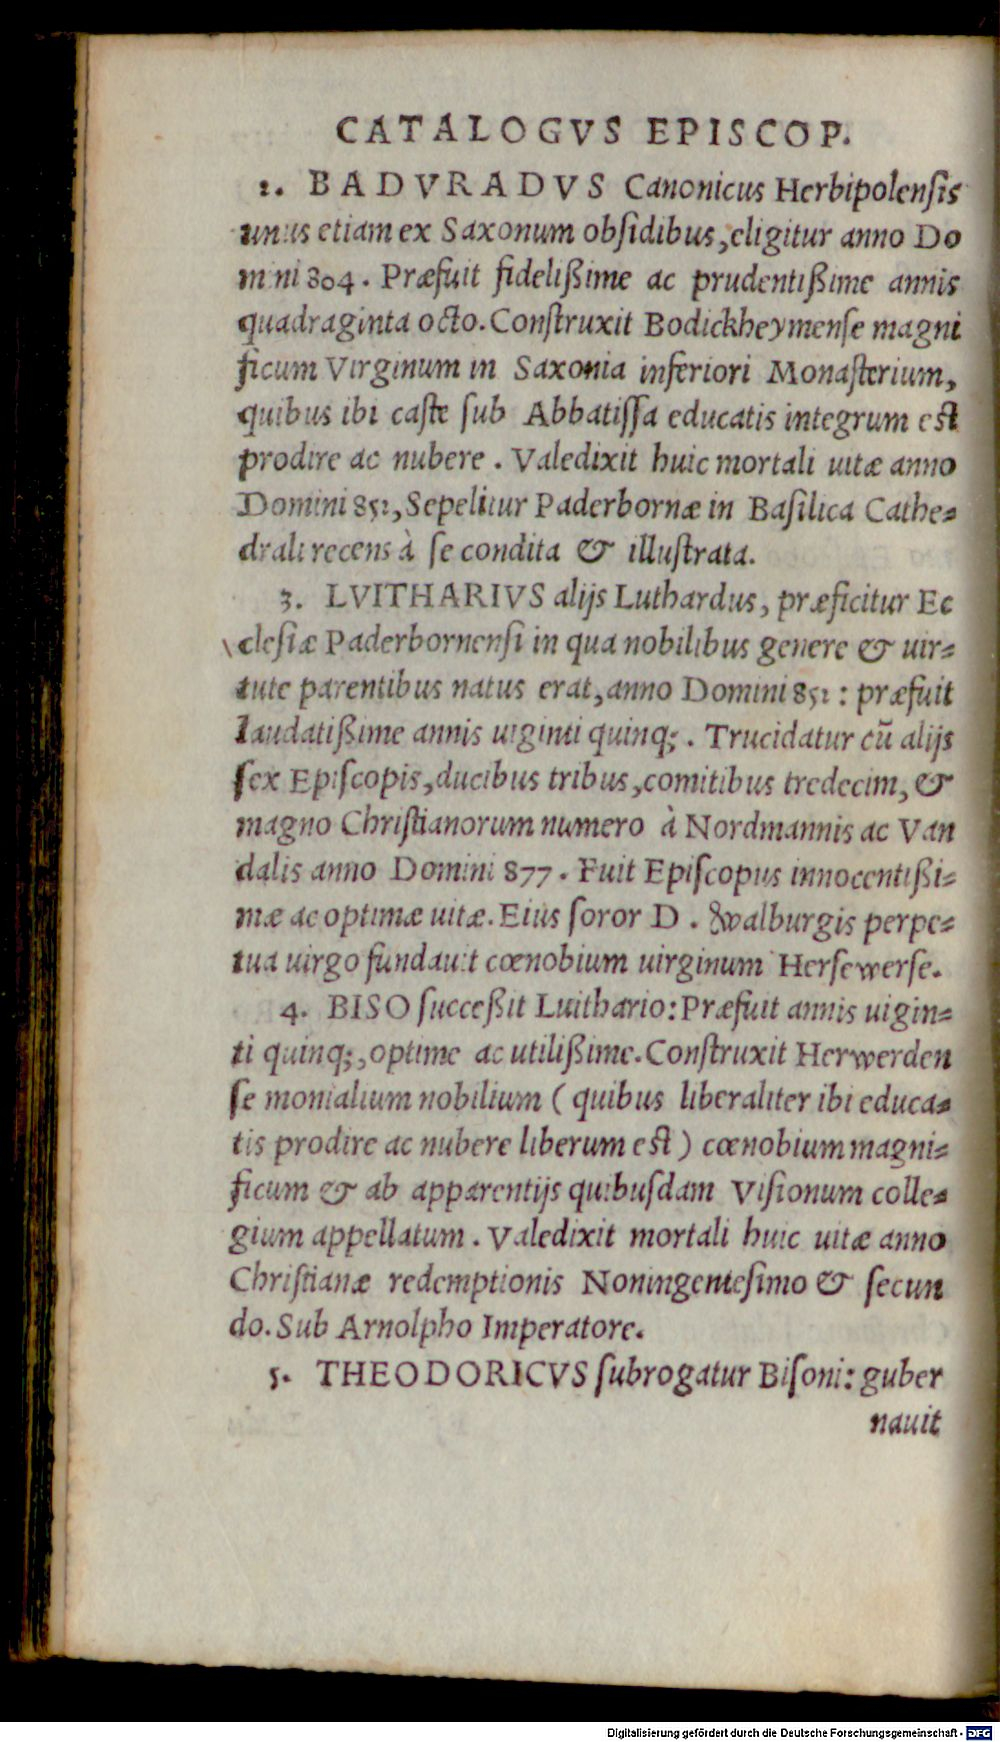 CATALOGVS EPISCOP.
2. BADVRADVS Canonicus Herbipolensis
unus etiam ex Saxonum obsidibus, eligitur anno Do
mini 804. Præfuit fidelißime ac prudentißime annis
quadraginta octo. Construxit Bodickheymense magni
ficum Virginum in Saxonia inferiori Monasterium,
quibus ibi caste sub Abbatissa educatis integrum est
prodire ac nubere. Valedixit huic mortali uitæ anno
Domini 852, Sepelitur Paderbornæ in Basilica Cathe=
drali recens à se condita & illustrata.
3. LVITHARIVS alijs Luthardus, præficitur Ec
clesiæ Paderbornensi in qua nobilibus genere & uir=
tute parentibus natus erat, anno Domini 852: præfuit
laudatißime annis uiginti quinq;. Trucidatur cū alijs
sex Episcopis, ducibus tribus, comitibus tredecim, &
magno Christianorum numero à Nordmannis ac Van
dalis anno Domini 877. Fuit Episcopus innocentißi=
mæ ac optimæ uitæ. Eius soror D. Walburgis perpe=
tua virgo fundauit cœnobium uirginum Hersewerse.
4. BISO succeßit Luithario: Præfuit annis uigin=
ti quinq;, optime ac utilißime. Construxit Herwerden
se monialium nobilium (quibus liberaliter ibi educa=
tis prodire ac nubere liberum est) cœnobium magni=
ficum & ab apparentijs quibusdam Visionum colle=
gium appellatum. Valedixit mortali huic uitæ anno
Christianæ redemptionis Noningentesimo & secun
do. Sub Arnolpho Imperatore.
5. THEODORICVS subrogatur Bisoni: guber
nauit
Digitalisierung gefördert durch die Deutsche Forschungsgemeinschaft - DFG